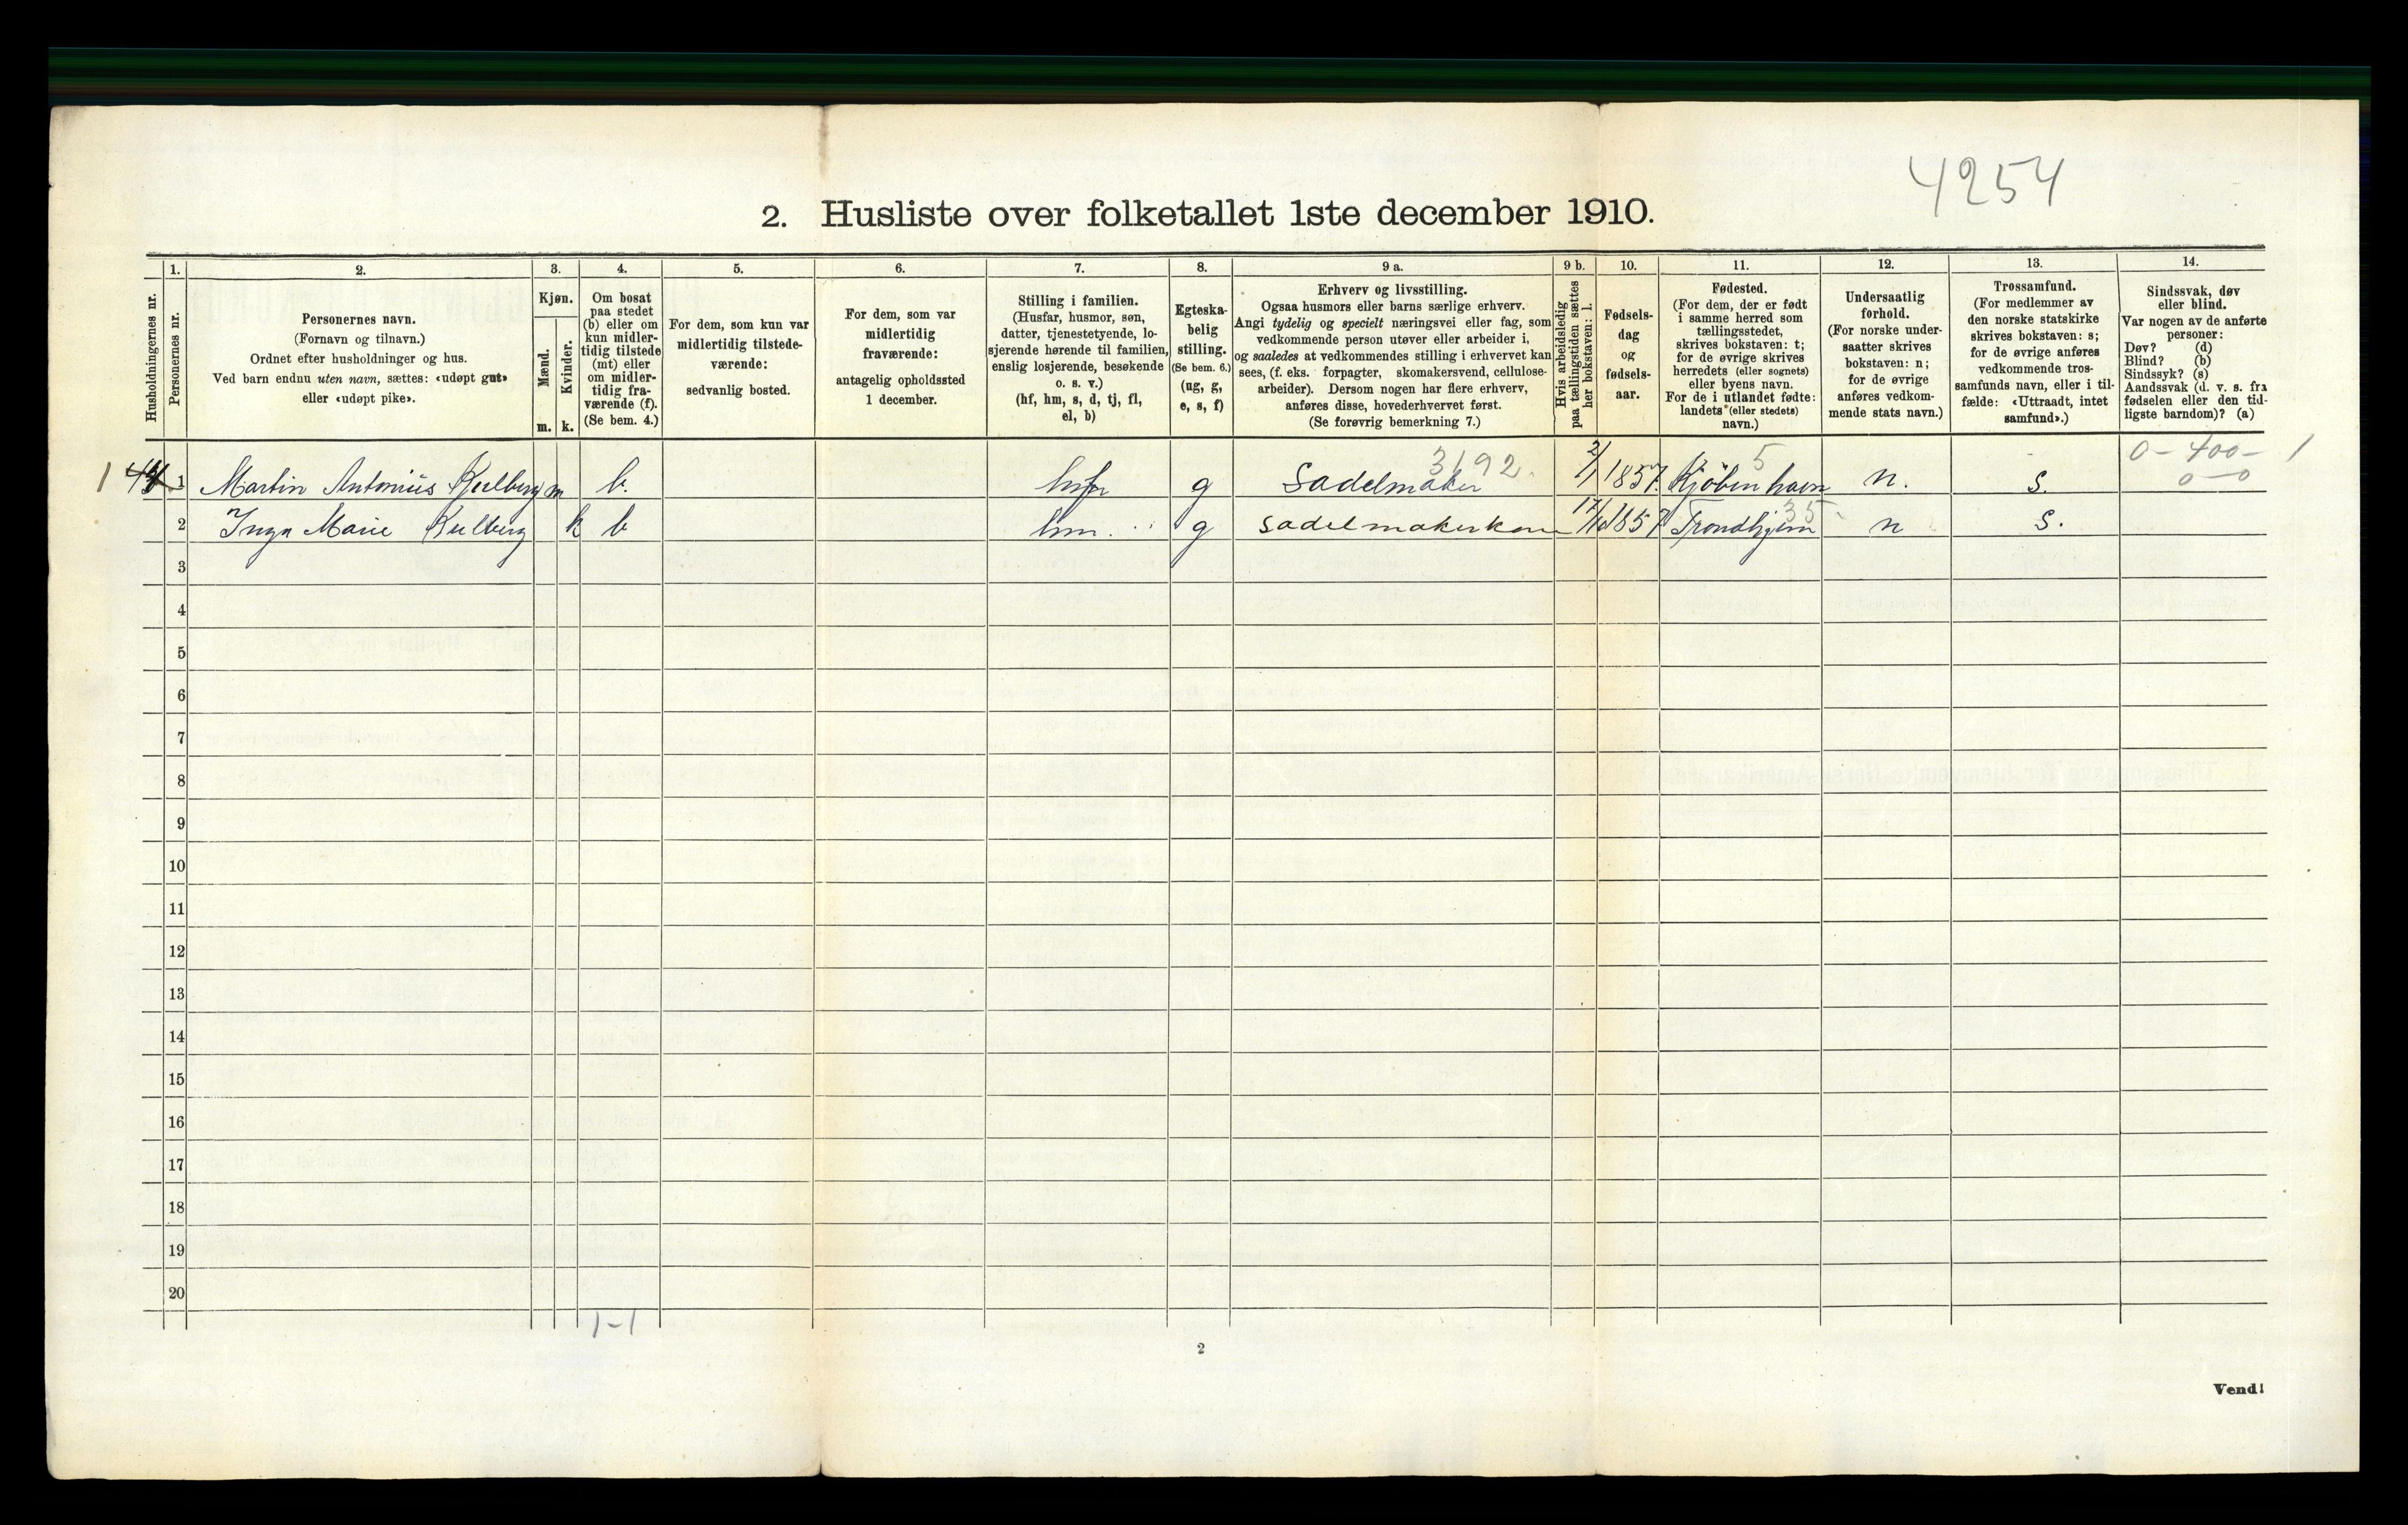 4254
2. Husliste over folketallet 1ste december 1910.
Husholdningernes nr.
1.
Personernes nr.
2.
Personernes navn.
(Fornavn og tilnavn.)
Ordnet efter husholdninger og hus.
Ved barn endnu uten navn, sættes: «udøpt gut»
eller «udøpt pike».
3.
Kjøn.
Mænd.
Kvinder.
m. k.
4.
Om bosat
paa stedet
(b) eller om
kun midler-
tidig tilstede
(mt) eller
om midler-
tidig fra-
værende (f).
(Se bem. 4.)
5.
For dem, som kun var
midlertidig tilstede-
værende:
sedvanlig bosted.
6.
For dem, som var
midlertidig
fraværende:
antagelig opholdssted
1 december.
7.
Stilling i familien.
(Husfar, husmor, søn,
datter, tjenestetyende, lo-
sjerende hørende til familien,
enslig losjerende, besøkende
o. s. v.)
(hf, hm, s, d, tj, fl,
el, b)
8.
Egteska-
belig
stilling.
(Se bem. 6.)
(ug, g,
e, s, f)
9 a.
Erhverv og livsstilling.
Ogsaa husmors eller barns særlige erhverv.
Angi tydelig og specielt næringsvei eller fag, som
vedkommende person utøver eller arbeider i,
og saaledes at vedkommendes stilling i erhvervet kan
sees, (f. eks. forpagter, skomakersvend, cellulose-
arbeider). Dersom nogen har flere erhverv,
anføres disse, hovederhvervet først.
(Se forøvrig bemerkning 7.)
9 b.
Hvis arbeidsledig
paa tællingstiden sættes
her bokstaven: l.
10.
Fødsels-
dag
og
fødsels-
aar.
11.
Fødested.
(For dem, der er født
i samme herred som
tællingsstedet,
skrives bokstaven: t;
for de øvrige skrives
herredets (eller sognets)
eller byens navn.
For de i utlandet fødte:
landets (eller stedets)
navn.)
12.
Undersaatlig
forhold.
(For norske under-
saatter skrives
bokstaven: n;
for de øvrige
anføres vedkom-
mende stats navn.)
13.
Trossamfund.
(For medlemmer av
den norske statskirke
skrives bokstaven: s;
for de øvrige anføres
vedkommende tros-
samfunds navn, eller i til-
fælde: «Uttraadt, intet
samfund».)
14.
Sindssvak, døv
eller blind.
Var nogen av de anførte
personer:
Døv? (d)
Blind? (b)
Sindssyk? (s)
Aandssvak (d. v. s. fra
fødselen eller den tid-
ligste barndom)? (a)
3192. 5 0-400- 1
1 1 Martin Antonius Kjelberg m b. hf g Sadelmaker 2/1 1857. Kjöbenhavn n. s. 0-0
35
2 Inga Marie k b hm. g sadelmakerkone 1857 Trondhjem n s.
3
4
5
6
7
8
9
10
11
12
13
14
15
16
17
18
19
20
1-1
2
Vend!